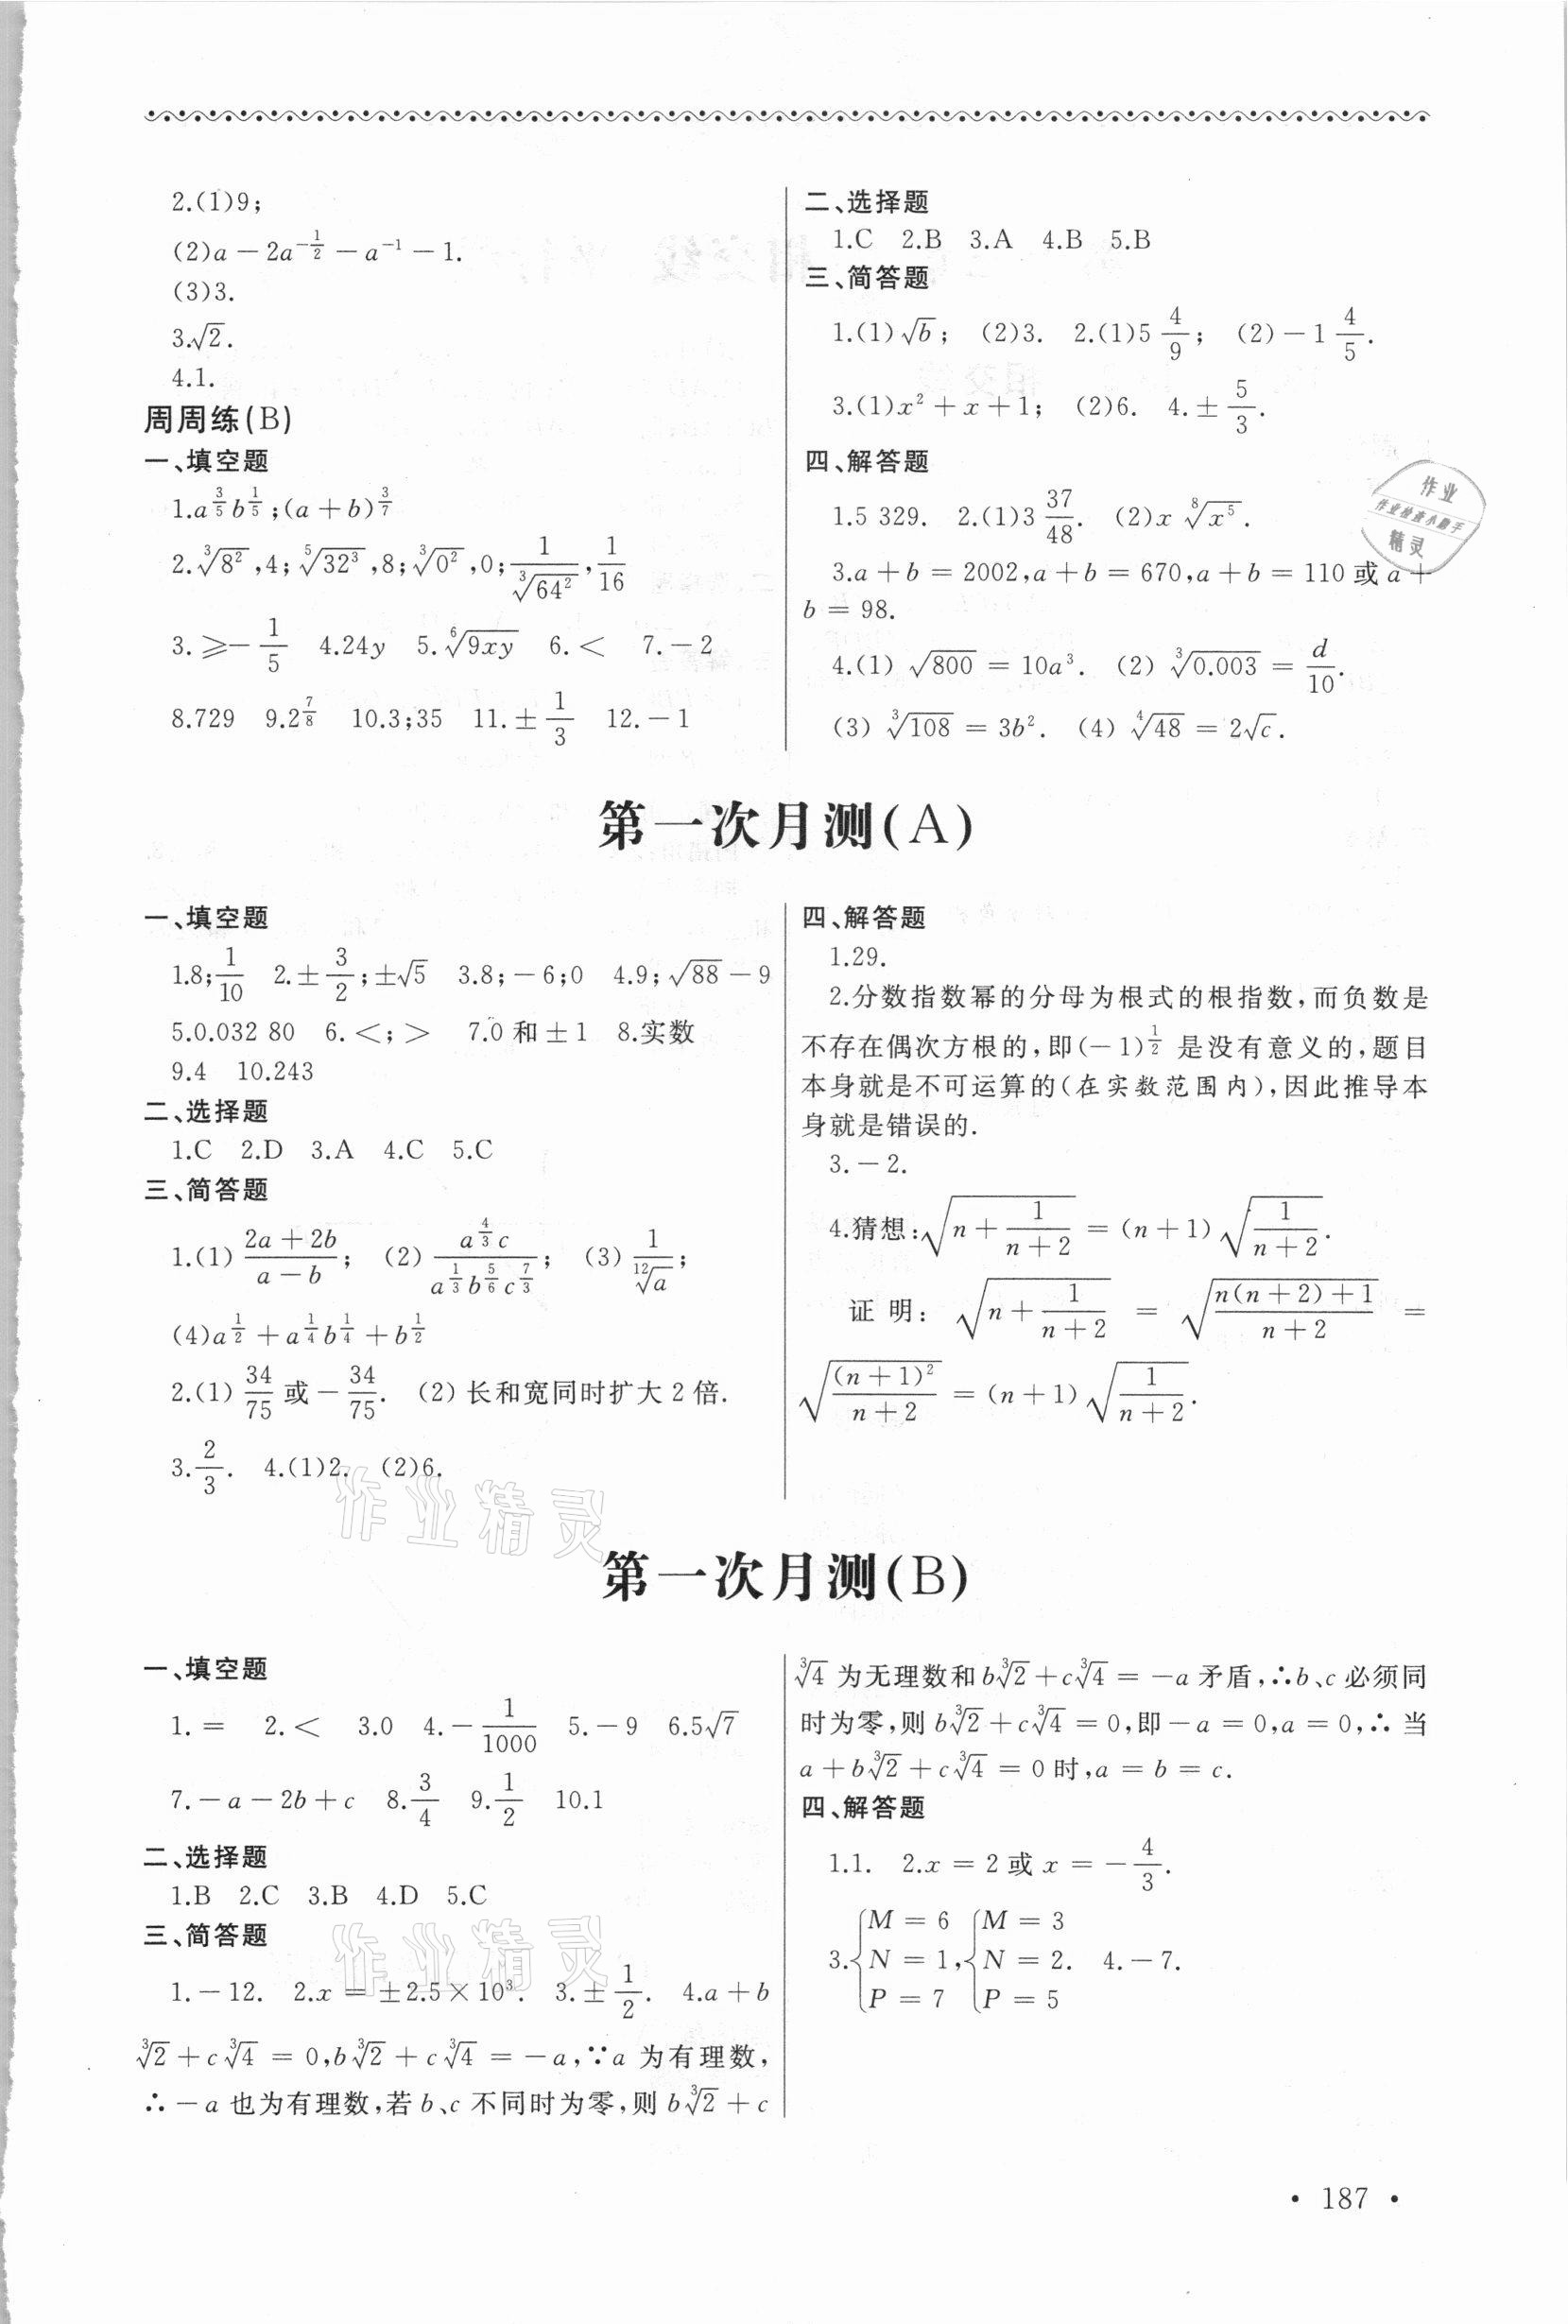 2.(1)9;
(2)a－2a^{-\frac{1}{2}}－a^{-1}－1.
(3)3.
3.√2.
4.1.
周周练(B)
一、填空题
1.a^{\frac{3}{5}}b^{\frac{1}{5}};(a＋b)^{\frac{3}{7}}
2.\sqrt[3]{8^2},4;\sqrt[5]{32^3},8;\sqrt[3]{0^2},0;\frac{1}{\sqrt[3]{64^2}},\frac{1}{16}
3.≥－\frac{1}{5} 4.24y 5.\sqrt[6]{9xy} 6.＜ 7.－2
8.729 9.2^{\frac{7}{8}} 10.3;35 11.±\frac{1}{3} 12.－1
二、选择题
1.C 2.B 3.A 4.B 5.B
三、简答题
1.(1)\sqrt{b}; (2)3. 2.(1)5\frac{4}{9}; (2)－1\frac{4}{5}.
3.(1)x^2＋x＋1; (2)6. 4.±\frac{5}{3}.
四、解答题
1.5 329. 2.(1)3\frac{37}{48}. (2)x\sqrt[8]{x^5}.
3.a＋b＝2002,a＋b＝670,a＋b＝110或a＋
b＝98.
4.(1)\sqrt{800}＝10a^3. (2)\sqrt[3]{0.003}＝\frac{d}{10}.
(3)\sqrt[3]{108}＝3b^2. (4)\sqrt[4]{48}＝2\sqrt{c}.
作业
作业检查小助手
精灵
第一次月测(A)
一、填空题
1.8;\frac{1}{10} 2.±\frac{3}{2};±\sqrt{5} 3.8;－6;0 4.9;\sqrt{88}－9
5.0.032 80 6.＜;＞ 7.0和±1 8.实数
9.4 10.243
二、选择题
1.C 2.D 3.A 4.C 5.C
三、简答题
1.(1)\frac{2a＋2b}{a－b}; (2)\frac{a^{\frac{4}{3}}c}{a^{\frac{1}{3}}b^{\frac{5}{6}}c^{\frac{7}{3}}}; (3)\frac{1}{\sqrt[12]{a}};
(4)a^{\frac{1}{2}}＋a^{\frac{1}{4}}b^{\frac{1}{4}}＋b^{\frac{1}{2}}
2.(1)\frac{34}{75}或－\frac{34}{75}. (2)长和宽同时扩大2倍.
3.\frac{2}{3}. 4.(1)2. (2)6.
四、解答题
1.29.
2.分数指数幂的分母为根式的根指数,而负数是
不存在偶次方根的,即(－1)^{\frac{1}{2}}是没有意义的,题目
本身就是不可运算的(在实数范围内),因此推导本
身就是错误的.
3.－2.
4.猜想:\sqrt{n＋\frac{1}{n＋2}}＝(n＋1)\sqrt{\frac{1}{n＋2}}.
证明:\sqrt{n＋\frac{1}{n＋2}}＝\sqrt{\frac{n(n＋2)＋1}{n＋2}}＝
\sqrt{\frac{(n＋1)^2}{n＋2}}＝(n＋1)\sqrt{\frac{1}{n＋2}}.
作业精灵
第一次月测(B)
一、填空题
1.＝ 2.＜ 3.0 4.－\frac{1}{1000} 5.－9 6.5\sqrt{7}
7.－a－2b＋c 8.\frac{3}{4} 9.\frac{1}{2} 10.1
二、选择题
1.B 2.C 3.B 4.D 5.C
三、简答题
1.－12. 2.x＝±2.5×10^3. 3.±\frac{1}{2}. 4.a＋b
\sqrt[3]{2}＋c\sqrt[3]{4}＝0,b\sqrt[3]{2}＋c\sqrt[3]{4}＝－a,∵a为有理数,
∴－a也为有理数,若b、c不同时为零,则b\sqrt[3]{2}＋c
作业精灵
\sqrt[3]{4}为无理数和b\sqrt[3]{2}＋c\sqrt[3]{4}＝－a矛盾,∴b、c必须同
时为零,则b\sqrt[3]{2}＋c\sqrt[3]{4}＝0,即－a＝0,a＝0,∴当
a＋b\sqrt[3]{2}＋c\sqrt[3]{4}＝0时,a＝b＝c.
四、解答题
1.1. 2.x＝2或x＝－\frac{4}{3}.
3.{M＝6 N＝1 P＝7,{M＝3 N＝2 P＝5. 4.－7.
• 187 •